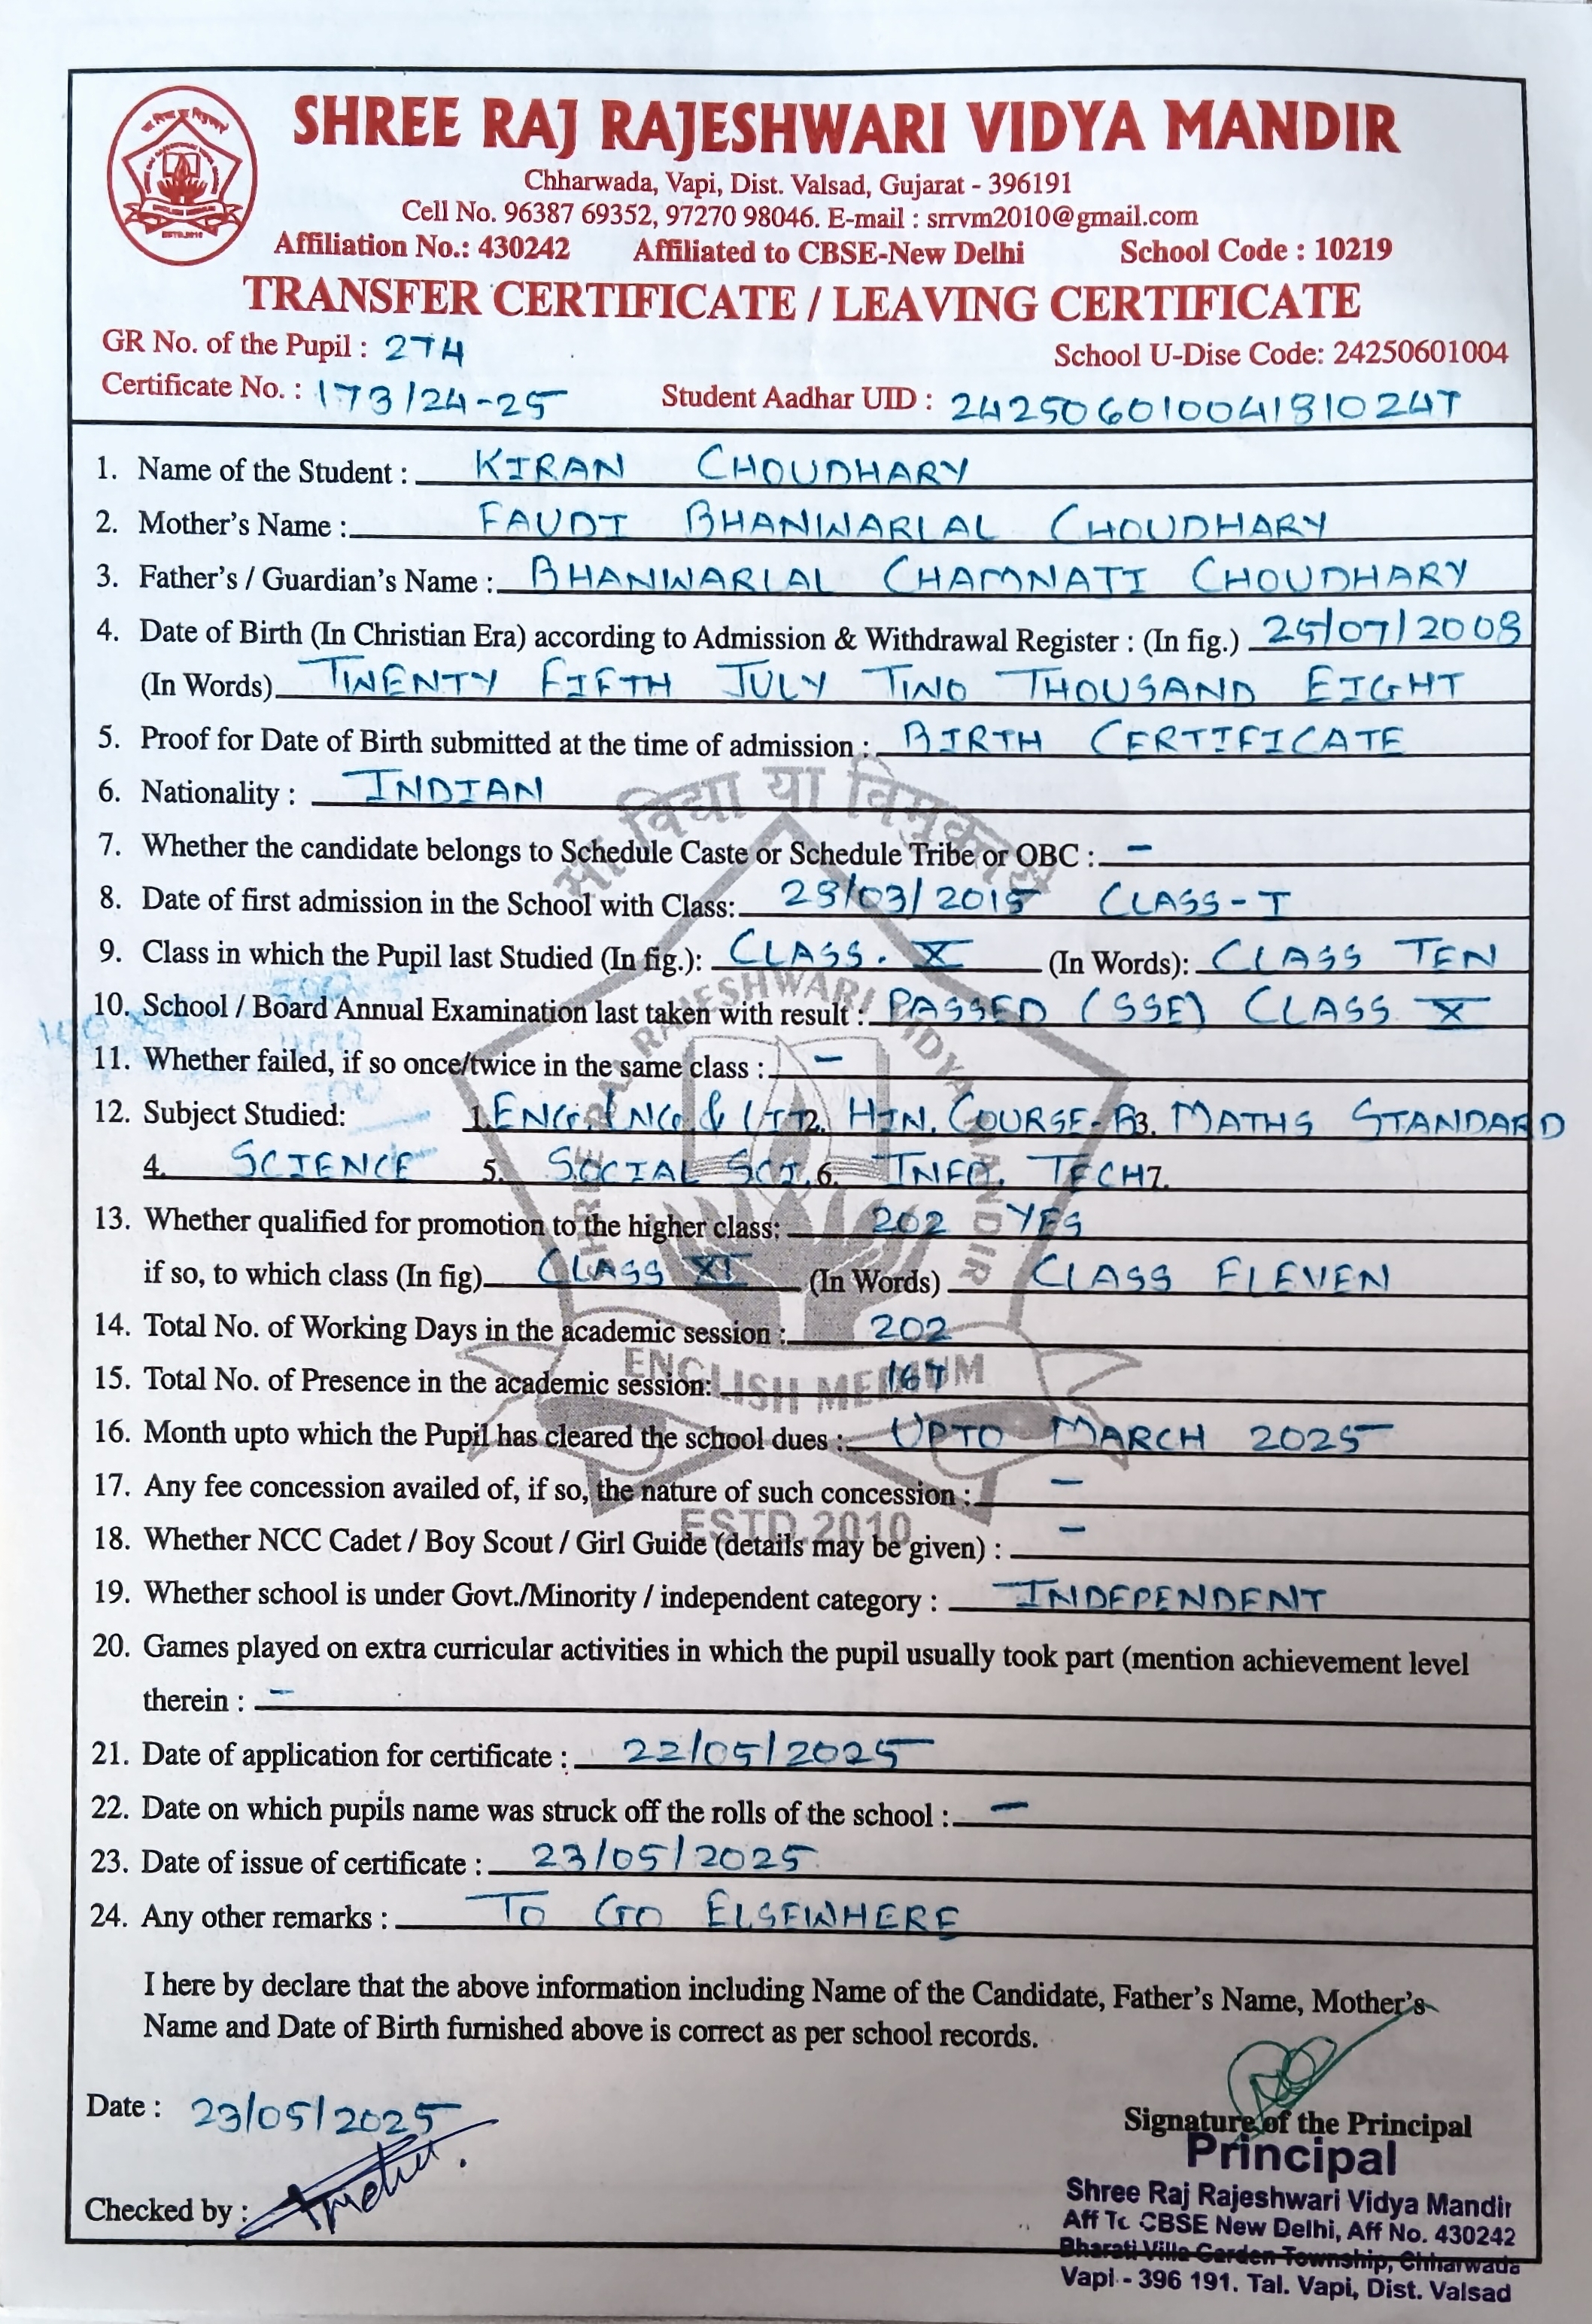 SHREE RAJ RAJESHWARI VIDYA MANDIR
Chharwada, Vapi, Dist. Valsad, Gujarat - 396191
Cell No. 96387 69352, 97270 98046. E-mail : srrvm2010@gmail.com
Affiliation No.: 430242 Affiliated to CBSE-New Delhi School Code : 10219
TRANSFER CERTIFICATE / LEAVING CERTIFICATE
GR No. of the Pupil : 274 School U-Dise Code: 24250601004
Certificate No. : 173/24-25 Student Aadhar UID : 242506010041810247
1. Name of the Student : KIRAN CHOUDHARY
2. Mother's Name : FAUDI BHANWARLAL CHOUDHARY
3. Father's / Guardian's Name : BHANWARLAL CHAMNAJI CHOUDHARY
4. Date of Birth (In Christian Era) according to Admission & Withdrawal Register : (In fig.) 25/07/2008
(In Words) TWENTY FIFTH JULY TWO THOUSAND EIGHT
5. Proof for Date of Birth submitted at the time of admission : BIRTH CERTIFICATE
6. Nationality : INDIAN
7. Whether the candidate belongs to Schedule Caste or Schedule Tribe or OBC : -
8. Date of first admission in the School with Class: 28/03/2015 CLASS-I
9. Class in which the Pupil last Studied (In fig.): CLASS. X (In Words): CLASS TEN
10. School / Board Annual Examination last taken with result : PASSED (SSE) CLASS X
11. Whether failed, if so once/twice in the same class : -
12. Subject Studied: 1. ENG. LNG & LIT 2. HIN. COURSE-B 3. MATHS STANDARD
4. SCIENCE 5. SOCIAL SCI. 6. INFO. TECH 7.
13. Whether qualified for promotion to the higher class: 202 YES
if so, to which class (In fig) CLASS XI (In Words) CLASS ELEVEN
14. Total No. of Working Days in the academic session : 202
15. Total No. of Presence in the academic session: 167
16. Month upto which the Pupil has cleared the school dues : UPTO MARCH 2025
17. Any fee concession availed of, if so, the nature of such concession : -
18. Whether NCC Cadet / Boy Scout / Girl Guide (details may be given) : -
19. Whether school is under Govt./Minority / independent category : INDEPENDENT
20. Games played on extra curricular activities in which the pupil usually took part (mention achievement level
therein : -
21. Date of application for certificate : 22/05/2025
22. Date on which pupils name was struck off the rolls of the school : -
23. Date of issue of certificate : 23/05/2025
24. Any other remarks : TO GO ELSEWHERE
I here by declare that the above information including Name of the Candidate, Father's Name, Mother's
Name and Date of Birth furnished above is correct as per school records.
Date : 23/05/2025
Signature of the Principal
Principal
Checked by :
Shree Raj Rajeshwari Vidya Mandir
Aff To CBSE New Delhi, Aff No. 430242
Bharati Villa Garden Township, Chharwada
Vapi - 396 191. Tal. Vapi, Dist. Valsad
सा विद्या या विमुक्तये
SHREE RAJ RAJESHWARI VIDYA MANDIR
ENGLISH MEDIUM
ESTD.2010